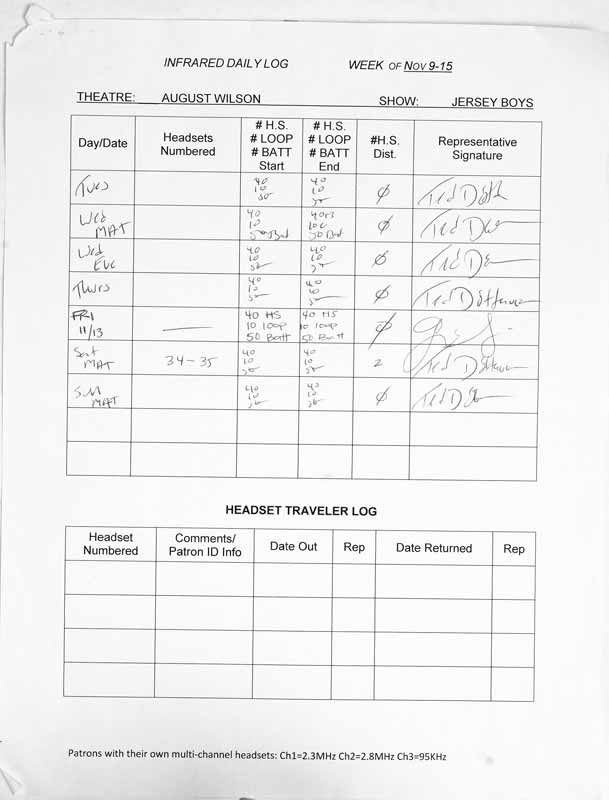 INFRARED DAILY LOG WEEK OF NOV 9-15
THEATRE: AUGUST WILSON SHOW: JERSEY BOYS
Day/Date
Headsets
Numbered
# H.S.
# LOOP
# BATT
Start
# H.S.
# LOOP
# BATT
End
#H.S.
Dist.
Representative
Signature
Tues
40
10
50
40
10
50
Ø
Ted D
Wed
MAT
40
10
50 Bat
40
10
50 Bat
Ø
Ted D
Wed
EVE
40
10
50
40
10
50
Ø
Ted D
Thurs
40
10
50
40
10
50
Ø
Ted D
FRI
11/13
—
40 HS
10 loop
50 Batt
40 HS
10 loop
50 Batt
Ø
Sat
MAT
34-35
40
10
50
40
10
50
2
Ted D
SUN
MAT
40
10
50
40
10
50
Ø
Ted D
HEADSET TRAVELER LOG
Headset
Numbered
Comments/
Patron ID Info
Date Out
Rep
Date Returned
Rep
Patrons with their own multi-channel headsets: Ch1=2.3MHz Ch2=2.8MHz Ch3=95KHz